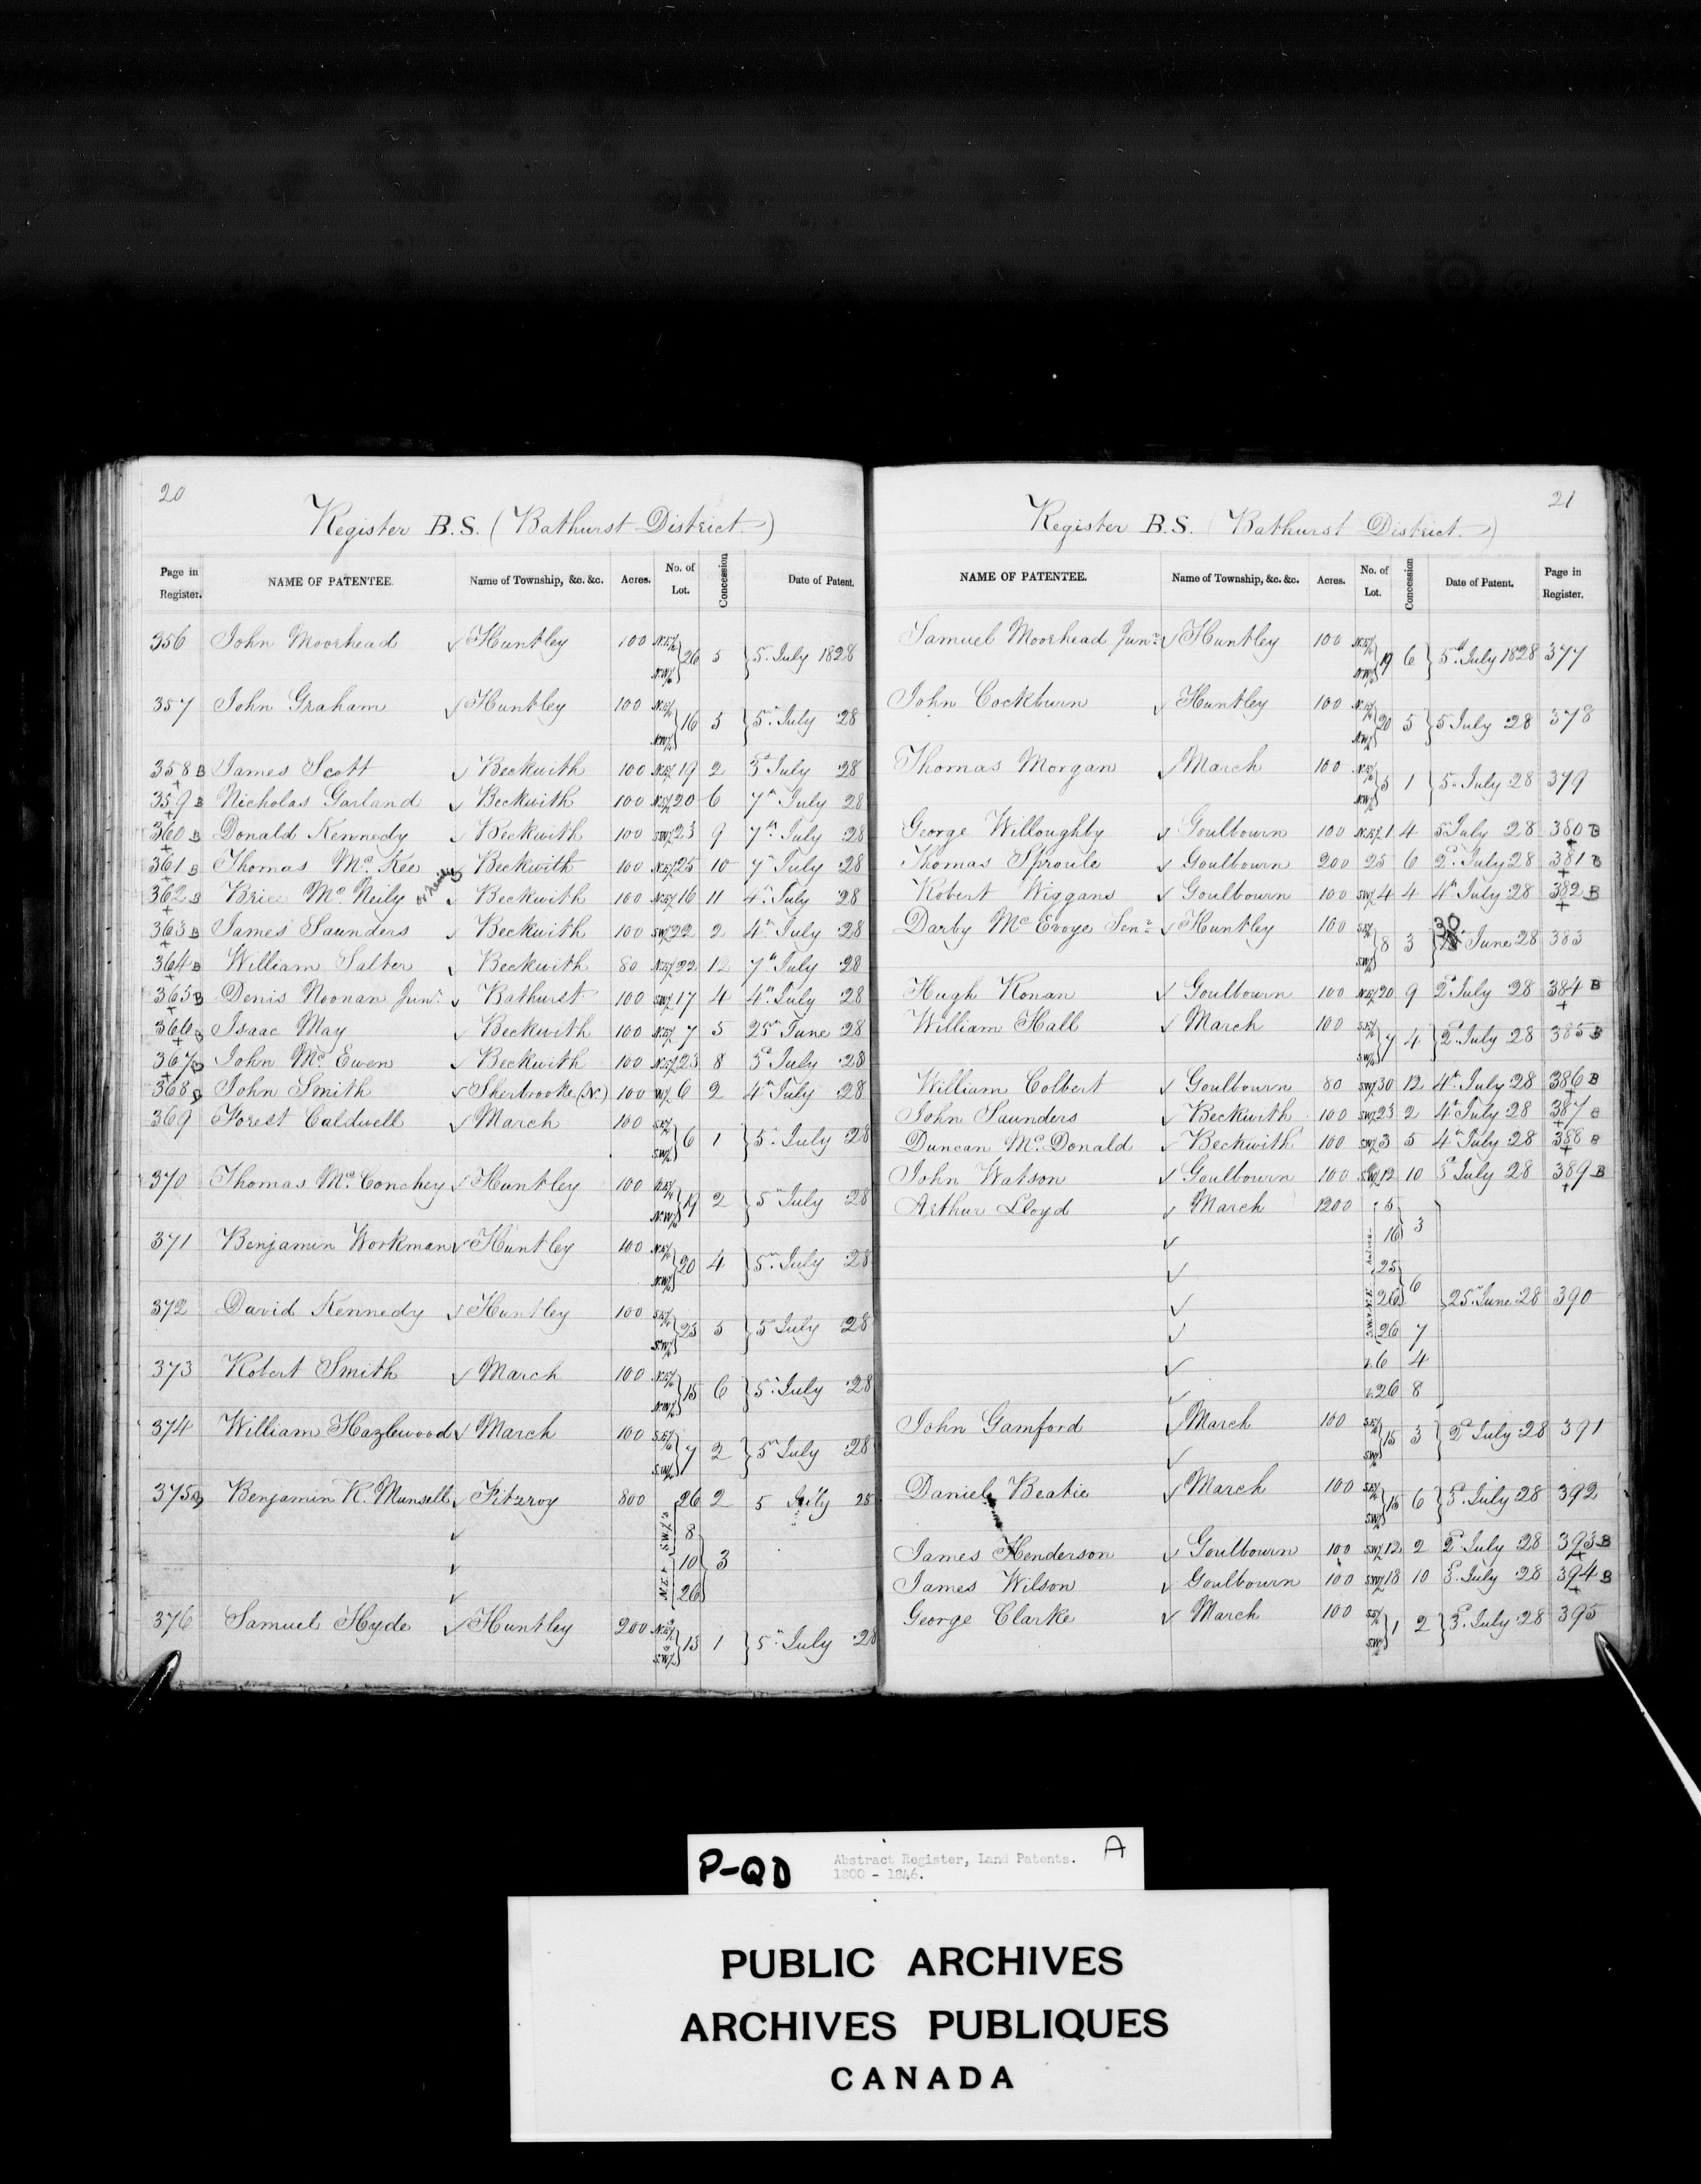 20
Register B.S. (Bathurst District.)
Page in Register. NAME OF PATENTEE. Name of Township, &c. &c. Acres. No. of Lot. Concession Date of Patent.
356 John Moorhead ✓ Huntley 100 N.E.¼ N.W.¼ } 26 5 } 5th July 1828
357 John Graham ✓ Huntley 100 N.E.¼ N.W.¼ } 16 5 } 5th July 28
358 B James Scott ✓ Beckwith 100 N.E.½ 19 2 3d July 28
359 B Nicholas Garland ✓ Beckwith 100 N.E.½ 20 6 7th July 28
360 B Donald Kennedy ✓ Beckwith 100 S.W.½ 23 9 7th July 28
361 B Thomas Mc Kee ✓ Beckwith 100 N.E.½ 25 10 7th July 28
362 B Brice Mc Neily ✓ Beckwith 100 N.E.½ 16 11 4th July 28
363 B James Saunders ✓ Beckwith 100 S.W.½ 22 2 4th July 28
364 B William Salter ✓ Beckwith 80 N.E.½ 22 12 7th July 28
365 B Denis Noonan Junr ✓ Bathurst 100 S.W.½ 17 4 4th July 28
366 B Isaac May ✓ Beckwith 100 N.E.½ 7 5 25th June 28
367 B John Mc Ewen ✓ Beckwith 100 N.E.½ 23 8 3d July 28
368 B John Smith ✓ Sherbrooke (N.) 100 W.½ 6 2 4th July 28
369 Forest Caldwell ✓ March 100 S.E.¼ S.W.¼ } 6 1 } 5th July 28
370 Thomas Mc Conchey ✓ Huntley 100 N.E.¼ N.W.¼ } 19 2 } 5th July 28
371 Benjamin Workman ✓ Huntley 100 N.E.¼ N.W.¼ } 20 4 } 5th July 28
372 David Kennedy ✓ Huntley 100 S.E.¼ S.W.¼ } 23 5 } 5th July 28
373 Robert Smith ✓ March 100 N.E.¼ N.W.¼ } 15 6 } 5th July 28
374 William Hazlewood ✓ March 100 S.E.¼ S.W.¼ } 7 2 } 5th July 28
375 B Benjamin K. Munsell ✓ Fitzroy 800 S.W.½'s 26 2 5 July 28
✓ 8
✓ N.E. 10 } 3
✓ 26
376 Samuel Hyde ✓ Huntley 200 N.E.½ S.W.½ } 13 1 } 5th July 28
21
Register B.S. (Bathurst District.)
NAME OF PATENTEE. Name of Township, &c. &c. Acres. No. of Lot. Concession Date of Patent. Page in Register.
Samuel Moorhead Junr ✓ Huntley 100 N.E.¼ N.W.¼ } 19 6 } 5th July 1828 377
John Cockburn ✓ Huntley 100 N.E.¼ N.W.¼ } 20 5 } 5 July 28 378
Thomas Morgan ✓ March 100 N.E.¼ N.W.¼ } 5 1 } 5th July 28 379
George Willoughby ✓ Goulbourn 100 N.E.½ 1 4 5 July 28 380 B
Thomas Sproule ✓ Goulbourn 200 25 6 2d July 28 381 B
Robert Wiggans ✓ Goulbourn 100 S.W.½ 4 4 4th July 28 382 B
Darby Mc Evoye Senr ✓ Huntley 100 S.E.¼ S.W.¼ } 8 3 } 30 June 28 383
Hugh Konan ✓ Goulbourn 100 N.E.½ 20 9 2d July 28 384 B
William Hall ✓ March 100 S.E.¼ S.W.¼ } 7 4 } 2d July 28 385 B
William Colbert ✓ Goulbourn 80 S.W.½ 30 12 4th July 28 386 B
John Saunders ✓ Beckwith 100 S.W.½ 23 2 4th July 28 387 B
Duncan Mc Donald ✓ Beckwith 100 S.W.½ 3 5 4th July 28 388 B
John Watson ✓ Goulbourn 100 S.W.½ 12 10 3d July 28 389 B
Arthur Lloyd ✓ March 1200 5
✓ 16 3
✓ 25
✓ 26 } 6 } 25th June 28 390
✓ 26 7
✓ 6 4
✓ 26 8
John Gamford ✓ March 100 S.E.¼ S.W.¼ } 15 3 } 2d July 28 391
✓
Daniel Beatie ✓ March 100 S.E.¼ S.W.¼ } 15 6 } 3d July 28 392
James Henderson ✓ Goulbourn 100 S.W.½ 12 2 2d July 28 393 B
James Wilson ✓ Goulbourn 100 S.W.½ 18 10 3d July 28 394 B
George Clarke ✓ March 100 S.E.¼ S.W.¼ } 1 2 } 3d July 28 395
P-QD Abstract Register, Land Patents. A
1800 - 1846.
PUBLIC ARCHIVES
ARCHIVES PUBLIQUES
CANADA